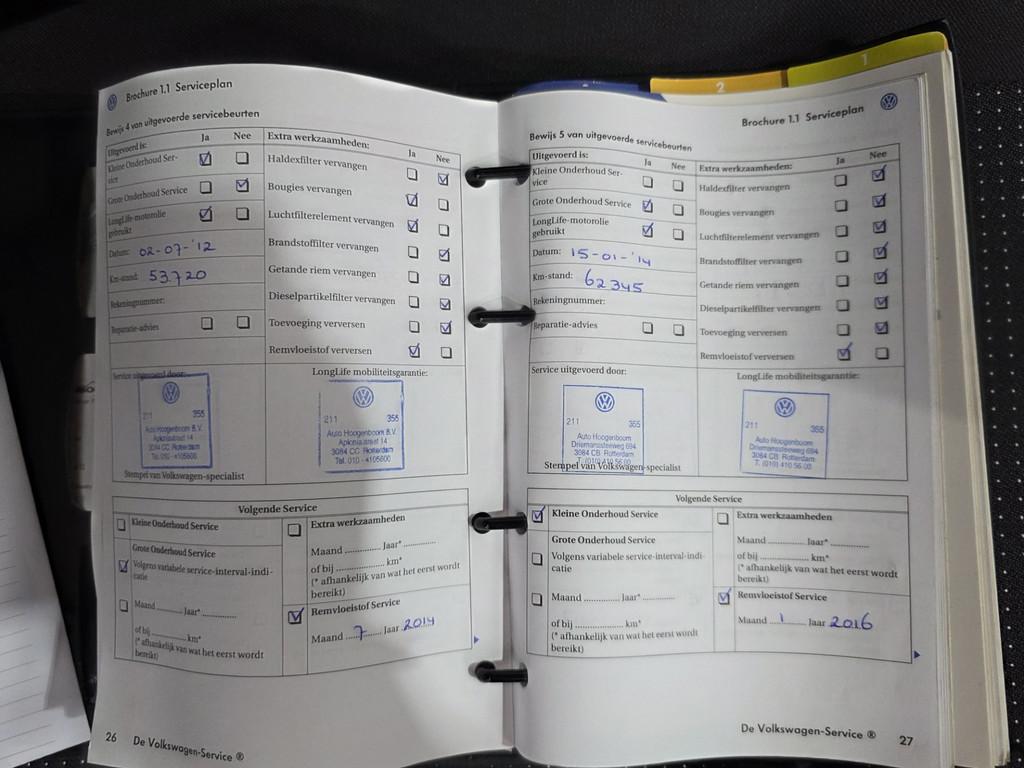 Brochure 1.1 Serviceplan
Bewijs 4 van uitgevoerde servicebeurten
Uitgevoerd is: Ja Nee
Kleine Onderhoud Ser-
vice
Grote Onderhoud Service
LongLife-motorolie
gebruikt
Datum: 02-07-'12
Km-stand: 53720
Rekeningnummer:
Reparatie-advies
Extra werkzaamheden: Ja Nee
Haldexfilter vervangen
Bougies vervangen
Luchtfilterelement vervangen
Brandstoffilter vervangen
Getande riem vervangen
Dieselpartikelfilter vervangen
Toevoeging verversen
Remvloeistof verversen
Service uitgevoerd door:
211 355
Auto Hoogenboom B.V.
3084 CC Rotterdam
Tel. 010 - 4105600
Stempel van Volkswagen-specialist
LongLife mobiliteitsgarantie:
211 355
Auto Hoogenboom B.V.
3084 CC Rotterdam
Tel. 010 - 4105600
Volgende Service
Kleine Onderhoud Service
Grote Onderhoud Service
Volgens variabele service-interval-indi-
catie
Maand ............ Jaar* ............
of bij ............ km*
(* afhankelijk van wat het eerst wordt
bereikt)
Extra werkzaamheden
Maand ............ Jaar* ............
of bij ............ km*
(* afhankelijk van wat het eerst wordt
bereikt)
Remvloeistof Service
Maand 7 Jaar 2014
26 De Volkswagen-Service ®
2
1
Brochure 1.1 Serviceplan
Bewijs 5 van uitgevoerde servicebeurten
Uitgevoerd is: Ja Nee
Kleine Onderhoud Ser-
vice
Grote Onderhoud Service
LongLife-motorolie
gebruikt
Datum: 15-01-'14
Km-stand: 62345
Rekeningnummer:
Reparatie-advies
Extra werkzaamheden: Ja Nee
Haldexfilter vervangen
Bougies vervangen
Luchtfilterelement vervangen
Brandstoffilter vervangen
Getande riem vervangen
Dieselpartikelfilter vervangen
Toevoeging verversen
Remvloeistof verversen
Service uitgevoerd door:
211 355
Auto Hoogenboom
Driemanssteeweg 694
3084 CB Rotterdam
T. (010) 410 56 00
Stempel van Volkswagen-specialist
LongLife mobiliteitsgarantie:
211 355
Auto Hoogenboom
Driemanssteeweg 694
3084 CB Rotterdam
T. (010) 410 56 00
Volgende Service
Kleine Onderhoud Service
Grote Onderhoud Service
Volgens variabele service-interval-indi-
catie
Maand ............ Jaar* ............
of bij ............ km*
(* afhankelijk van wat het eerst wordt
bereikt)
Extra werkzaamheden
Maand ............ Jaar* ............
of bij ............ km*
(* afhankelijk van wat het eerst wordt
bereikt)
Remvloeistof Service
Maand 1 Jaar 2016
De Volkswagen-Service ® 27